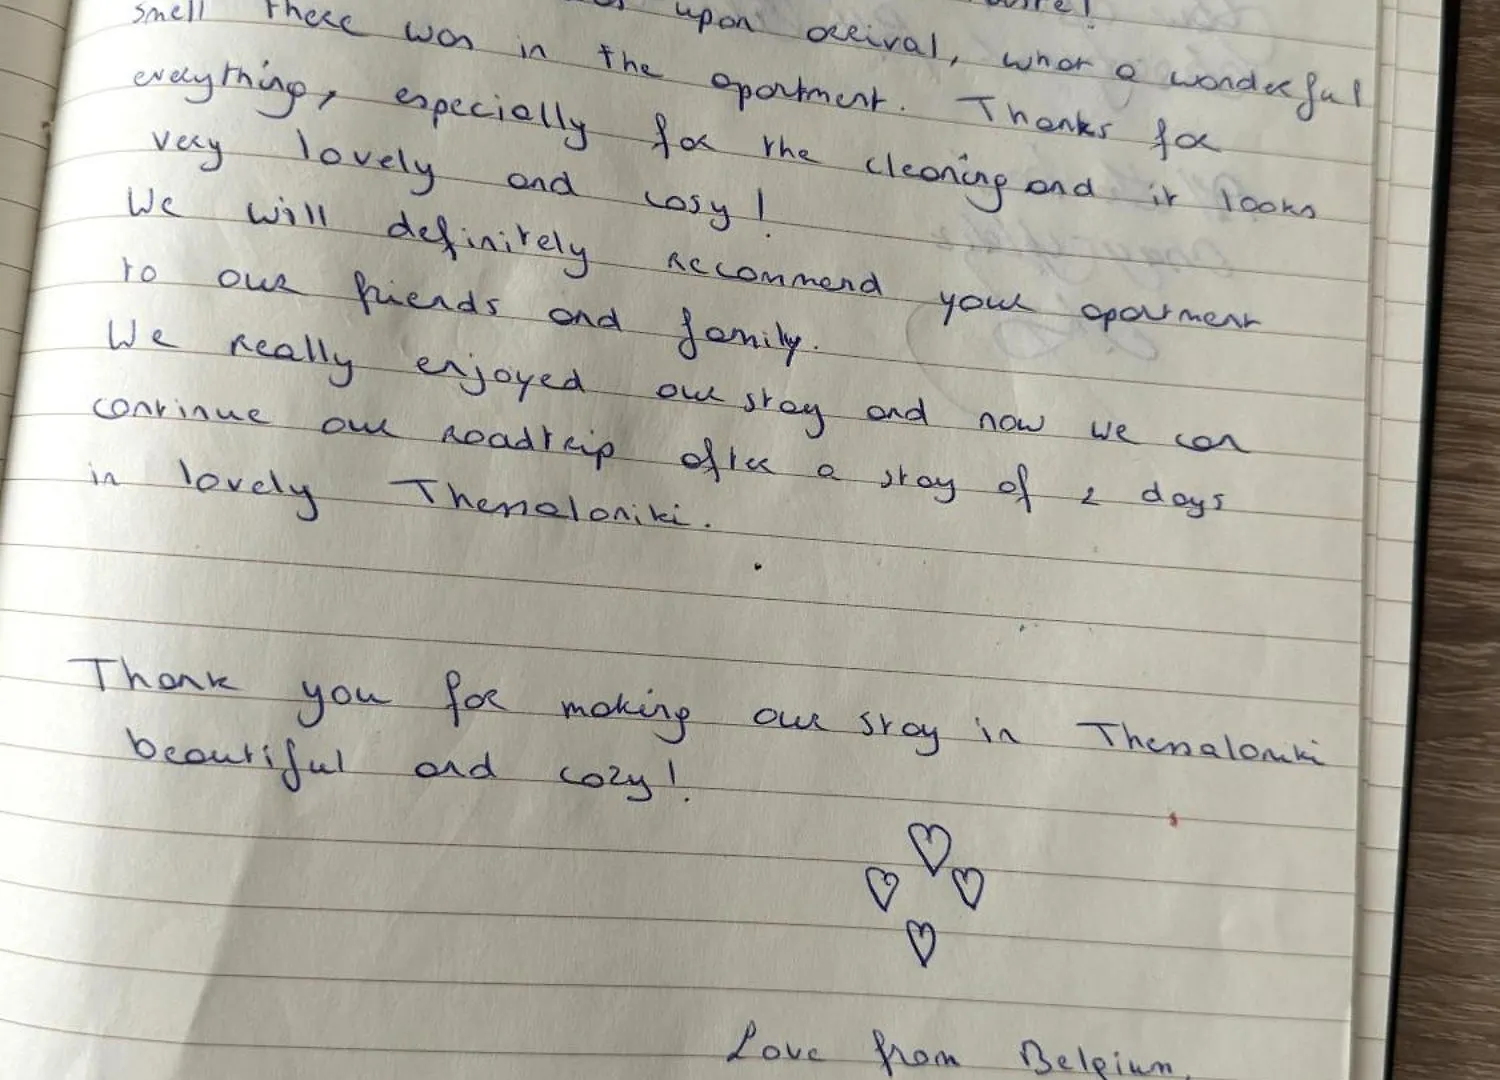 upon arrival, what a wonderful
smell there was in the apartment. Thanks for
everything, especially for the cleaning and it looks
very lovely and cosy!
We will definitely recommend your apartment
to our friends and family.
We really enjoyed our stay and now we can
continue our roadtrip after a stay of 2 days
in lovely Thessaloniki.
Thank you for making our stay in Thessaloniki
beautiful and cozy!
Love from Belgium.